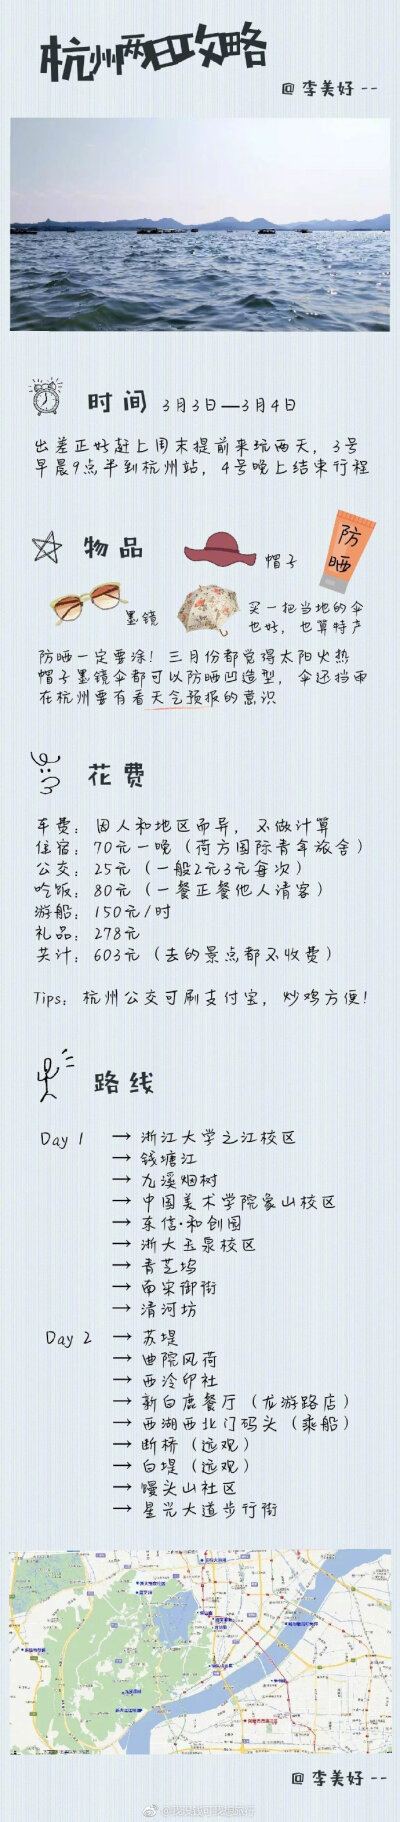 杭州两日攻略
@李美好--
时间 3月3日—3月4日
出差正好赶上周末提前来玩两天，3号
早晨9点半到杭州站，4号晚上结束行程
物品
帽子
防
晒
墨镜
买一把当地的伞
也好，也算特产
防晒一定要涂！三月份都觉得太阳火热
帽子墨镜伞都可以防晒凹造型，伞还挡雨
在杭州要有看天气预报的意识
花费
车费：因人和地区而异，不做计算
住宿：70元一晚（荷方国际青年旅舍）
公交：25元（一般2元3元每次）
吃饭：80元（一餐正餐他人请客）
游船：150元/时
礼品：278元
共计：603元（去的景点都不收费）
Tips：杭州公交可刷支付宝，炒鸡方便！
路线
Day 1 → 浙江大学之江校区
→ 钱塘江
→ 九溪烟树
→ 中国美术学院象山校区
→ 东信·和创园
→ 浙大玉泉校区
→ 青芝坞
→ 南宋御街
→ 清河坊
Day 2 → 苏堤
→ 曲院风荷
→ 西泠印社
→ 新白鹿餐厅（龙游路店）
→ 西湖西北门码头（乘船）
→ 断桥（远观）
→ 白堤（远观）
→ 馒头山社区
→ 星光大道步行街
@李美好--